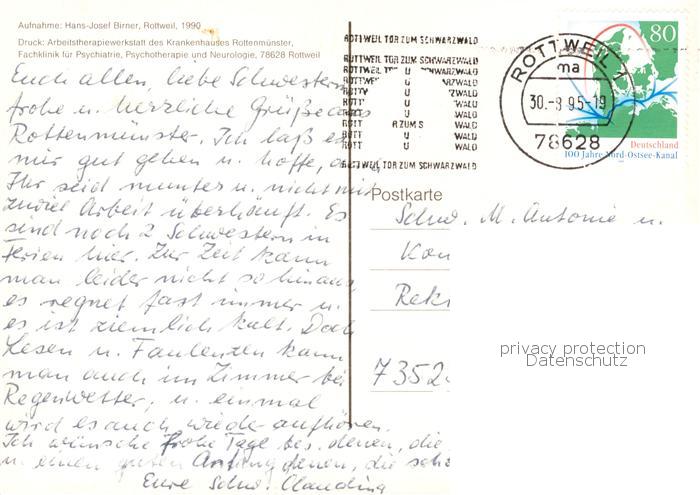 Aufnahme: Hans-Josef Birner, Rottweil, 1990
Druck: Arbeitstherapiewerkstatt des Krankenhauses Rottenmünster,
Fachklinik für Psychiatrie, Psychotherapie und Neurologie, 78628 Rottweil
Euch allen, liebe Schwestern
frohe u. herzliche Grüße aus
Rottenmünster. Ich laß es
mir gut gehen u. hoffe,
Ihr seid munter u. nicht mit
zuviel Arbeit überhäuft. Es
sind noch 2 Schwestern in
Ferien hier. Zur Zeit kann
man leider nicht so hinaus,
es regnet fast immer u.
es ist ziemlich kalt. Doch
Lesen u. Faulenzen kann
man auch im Zimmer bei
Regenwetter, u. einmal
wird es auch wieder aufhören.
Ich wünsche frohe Tage bes. denen, die
u. einen guten Anfang denen, die
Eure Schw. Claudina
ROTTWEIL TOR ZUM SCHWARZWALD
ROTTWEIL TOR ZUM SCHWARZWALD
ROTTWEIL TOR ZUM SCHWARZWALD
ROTTWEIL 1
ma
30.-8.95-19
78628
80
Deutschland
100 Jahre Nord-Ostsee-Kanal
Postkarte
Schw. M. Antonie u.
Kon
Rek
7352
privacy protection
Datenschutz